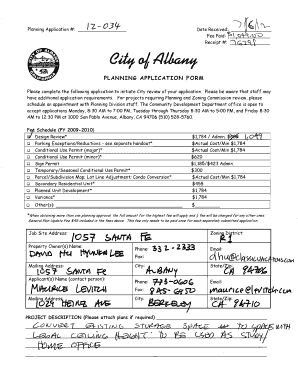 Planning Application #: 12-034
Date Received: 2/6/12
Fee Paid:
Receipt #:
City of Albany
PLANNING APPLICATION FORM
Please complete the following application to initiate City review of your application. Please be aware that staff may have additional application requirements. For projects requiring Planning and Zoning Commission review, please schedule an appointment with Planning Division staff. The Community Development Department office is open to accept applications Monday, 8:30 AM to 7:00 PM, Tuesday through Thursday 8:30 AM to 5:00 PM, and Friday 8:30 AM to 12:30 PM at 1000 San Pablo Avenue, Albany, CA 94706 (510) 528-5760.
Fee Schedule (FY 2009-2010)
Design Review* $1,784 / Admin. 1,099
Parking Exceptions/Reductions - see separate handout* $Actual Cost/Min $1784
Conditional Use Permit (major)* $Actual Cost/Min $1784
Conditional Use Permit (minor)* $620
Sign Permit Admin
Temporary/Seasonal Conditional Use Permit* $300
Parcel/Subdivision Map; Lot Line Adjustment; Condo Conversion* $Actual Cost/Min $1784
Secondary Residential Unit* $498
Planned Unit Development* $1784
Variance* $1,784
Other(s): $
*When obtaining more than one planning approval, the full amount for the highest fee will apply and ½ fee will be charged for any other ones.
General Plan Update Fee $45 included in the fees above. This fee only needs to be paid once for each separately submitted application
Job Site Address: 1057 SANTA FE
Zoning District: R1
Property Owner(s) Name: DAVID LEE
Phone: 332-2333
Fax:
Email:
Mailing Address: 1057 SANTA FE
City: ALBANY
State/Zip: CA 94706
Applicant(s) Name (contact person): MAURICE LEVITCH
Phone: 773-0606
Fax: 845-6850
Email:
Mailing Address: 1029 HEINZ AVE
City: BERKELEY
State/Zip: CA 94710
PROJECT DESCRIPTION (Please attach plans if required)
CONVERT EXISTING STORAGE SPACE WITH
LEGAL CEILING HEIGHT TO BE USED AS STUDY/
HOME OFFICE